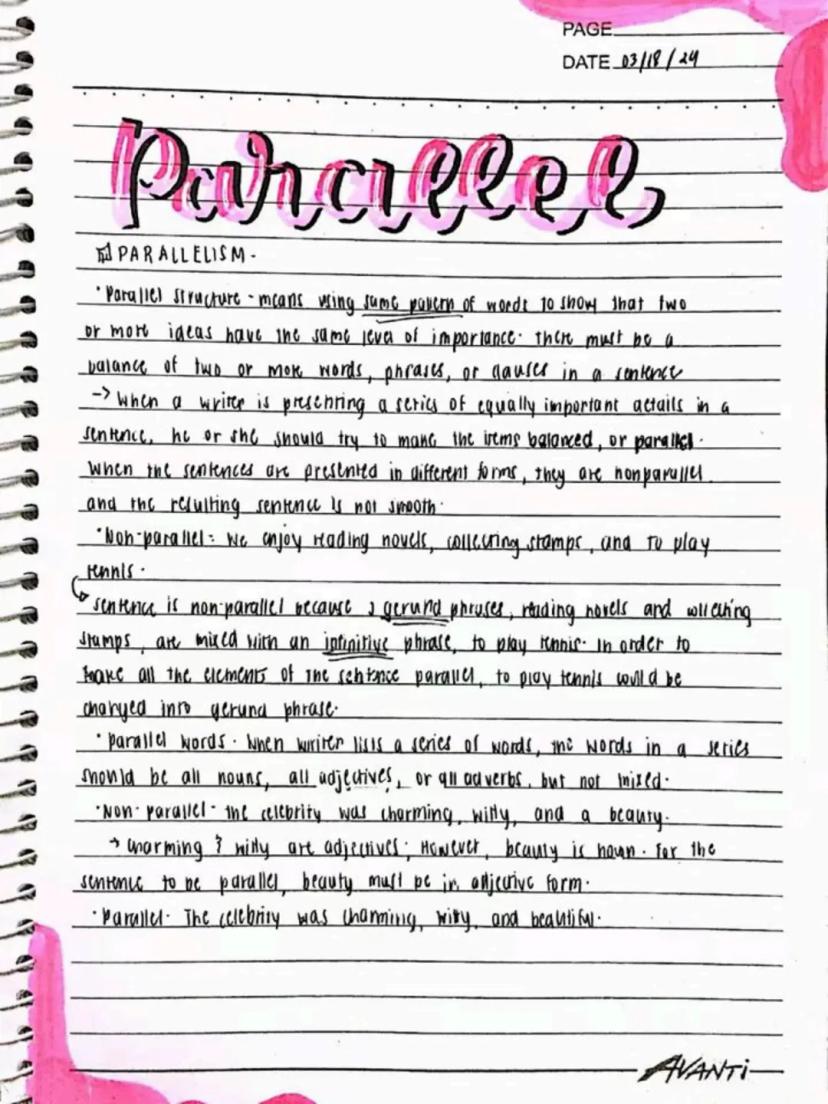 PAGE
DATE 03/18/24
Parallel
PARALLELISM.
• Parallel structure - means using same pattern of words to show that two
or more ideas have the same level of importance. there must be a
balance of two or more words, phrases, or clauses in a sentence
-> When a writer is presenting a series of equally important details in a
sentence, he or she should try to make the items balanced, or parallel.
When the sentences are presented in different forms, they are nonparallel
and the resulting sentence is not smooth.
• Non-parallel: We enjoy reading novels, collecting stamps, and to play
tennis.
sentence is non-parallel because 2 gerund phrases, reading novels and collecting
stamps, are mixed with an infinitive phrase, to play tennis. In order to
make all the elements of the sentence parallel, to play tennis could be
changed into gerund phrase.
• parallel words. When writer lists a series of words, the words in a series
should be all nouns, all adjectives, or all adverbs, but not mixed.
• Non-parallel - the celebrity was charming, witty, and a beauty.
→ charming & witty are adjectives; However, beauty is noun. For the
sentence to be parallel, beauty must be in adjective form.
• Parallel. The celebrity was charming, witty, and beautiful.
AVANTi